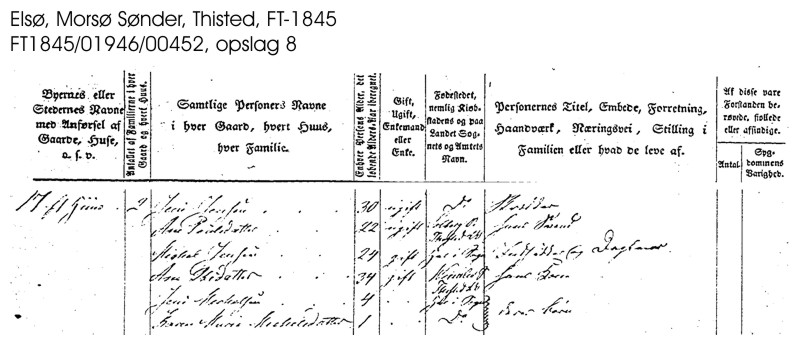 Elsø, Morsø Sønder, Thisted, FT-1845
FT1845/01946/00452, opslag 8
Byernes eller
Stedernes Navne
med Anførsel af
Gaarde, Huse,
o. s. v.
Antallet af Familierne i hver
Gaard og hvert Huus.
Samtlige Personers Navne
i hver Gaard, hvert Huus,
hver Familie.
Enhver Persons Alder, det
løbende Alders-Aar iberegnet.
Gift,
Ugift,
Enkemand
eller
Enke.
Fødestedet,
nemlig Kiøb-
stadens og paa
Landet Sog-
nets og Amtets
Navn.
Personernes Titel, Embede, Forretning,
Haandværk, Næringsvei, Stilling i
Familien eller hvad de leve af.
Af disse vare
Forstanden be-
røvede, fiollede
eller afsindige.
Antal.
Syg-
dommens
Varighed.
17. et Huus 2 Jens Jensen 30 ugift Do
Ane Poulsdatter 22 ugift
Michel Jensen 24 gift her i Sognet Indsidder og Daglønner
Ane 34 gift hans Kone
Jens Michelsen 4 her i Sognet
Karen Marie Michelsdatter 1 Do deres Børn